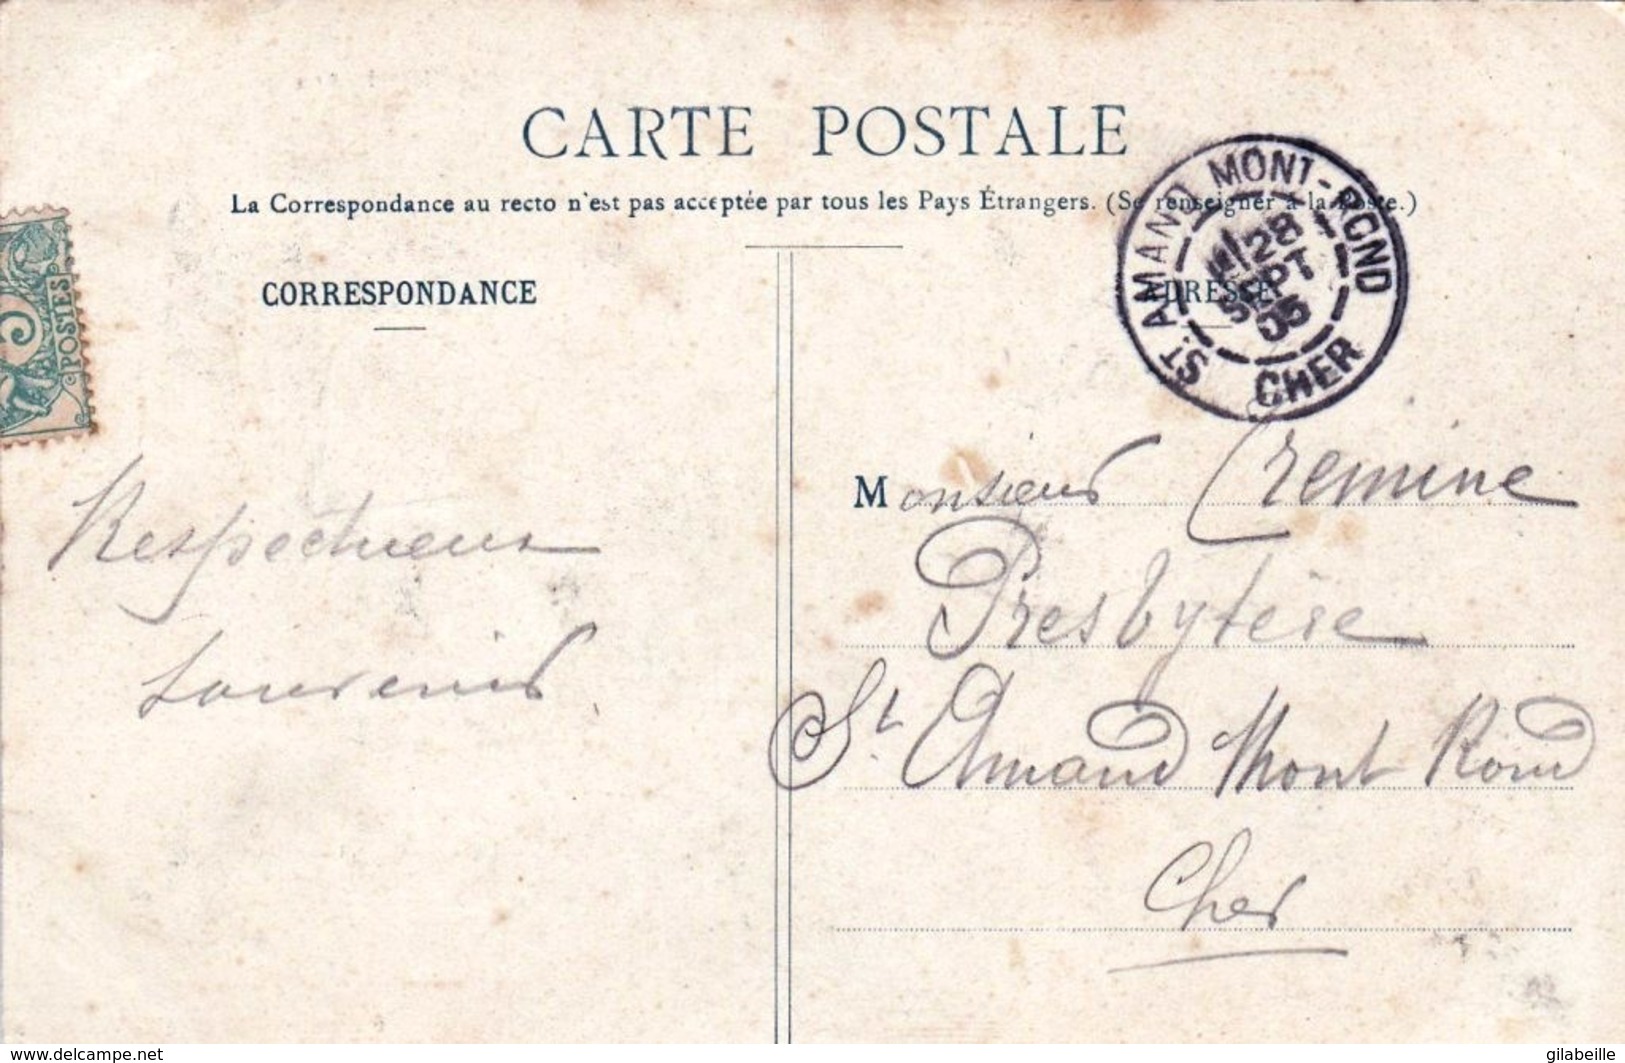 CARTE POSTALE
La Correspondance au recto n'est pas acceptée par tous les Pays Étrangers. (Se renseigner à la Poste.)
CORRESPONDANCE
ADRESSE
ST. AMAND MONT-ROND
28
SEPT
05
CHER
5
POSTES
Respectueux
souvenirs
Monsieur Cremine
Presbytère
St Amand Mont Rond
Cher
www.delcampe.net
gilabeille